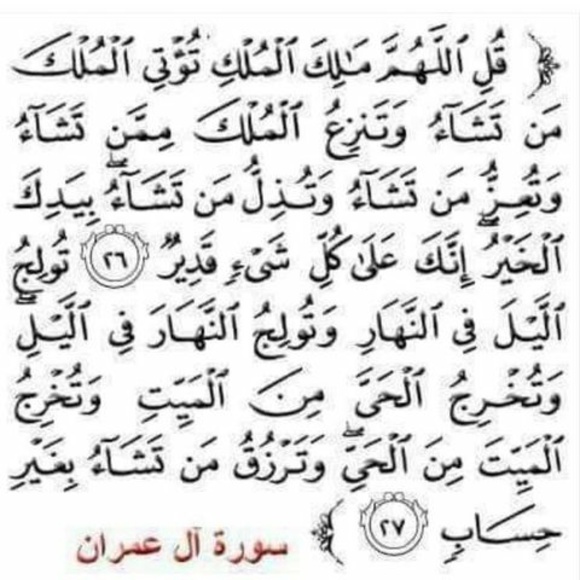 ﴿ قُلِ ٱللَّهُمَّ مَٰلِكَ ٱلْمُلْكِ تُؤْتِي ٱلْمُلْكَ
مَن تَشَآءُ وَتَنزِعُ ٱلْمُلْكَ مِمَّن تَشَآءُ
وَتُعِزُّ مَن تَشَآءُ وَتُذِلُّ مَن تَشَآءُۖ بِيَدِكَ
ٱلْخَيْرُۖ إِنَّكَ عَلَىٰ كُلِّ شَىْءٍ قَدِيرٌ ٢٦ تُولِجُ
ٱلَّيْلَ فِى ٱلنَّهَارِ وَتُولِجُ ٱلنَّهَارَ فِى ٱلَّيْلِۖ
وَتُخْرِجُ ٱلْحَىَّ مِنَ ٱلْمَيِّتِ وَتُخْرِجُ
ٱلْمَيِّتَ مِنَ ٱلْحَىِّۖ وَتَرْزُقُ مَن تَشَآءُ بِغَيْرِ
حِسَابٍ ٢٧ ﴾ سورة آل عمران